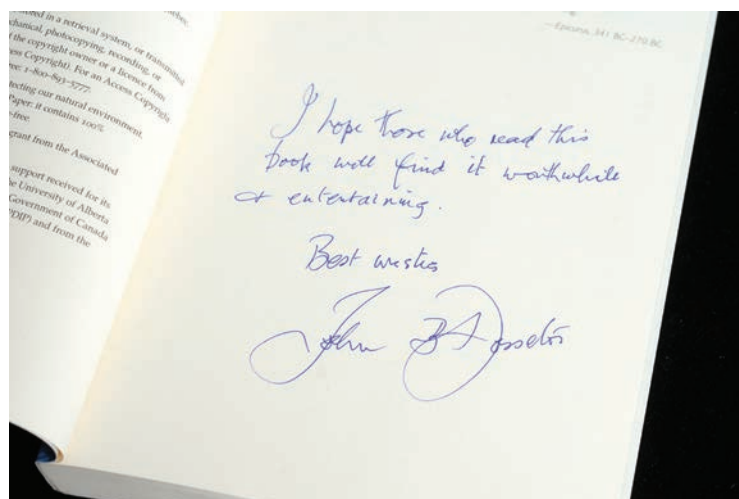 ored in a retrieval system, or transmitted
chanical, photocopying, recording, or
f the copyright owner or a licence from
ess Copyright). For an Access Copyright
ree: 1-800-893-5777.
tecting our natural environment.
Paper: it contains 100%
-free.
grant from the Associated
support received for its
e University of Alberta
Government of Canada
PDIP) and from the
—Epicurus, 341 BC–270 BC
I hope those who read this
book will find it worthwhile
& entertaining.
Best wishes
John B Dossetor